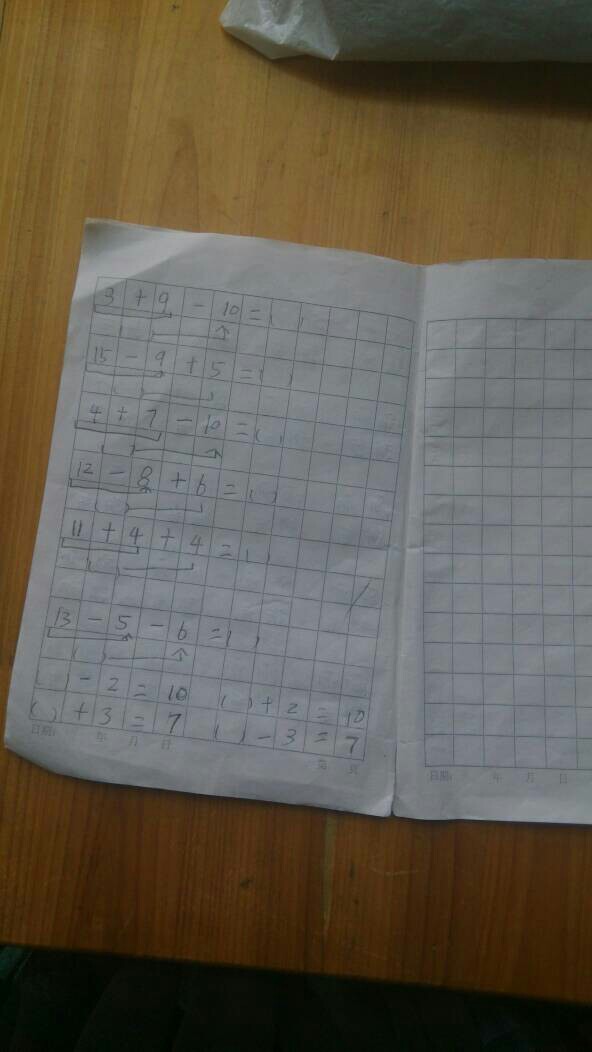 3 + 9 - 10 = ( )
( )
15 - 9 + 5 = ( )
( )
4 + 7 - 10 = ( )
( )
12 - 8 + 6 = ( )
( )
11 + 4 + 4 = ( )
( )
13 - 5 - 6 = ( )
( )
( ) - 2 = 10 ( ) + 2 = 10
( ) + 3 = 7 ( ) - 3 = 7
日期: 年 月 日
第 页
日期: 年 月 日